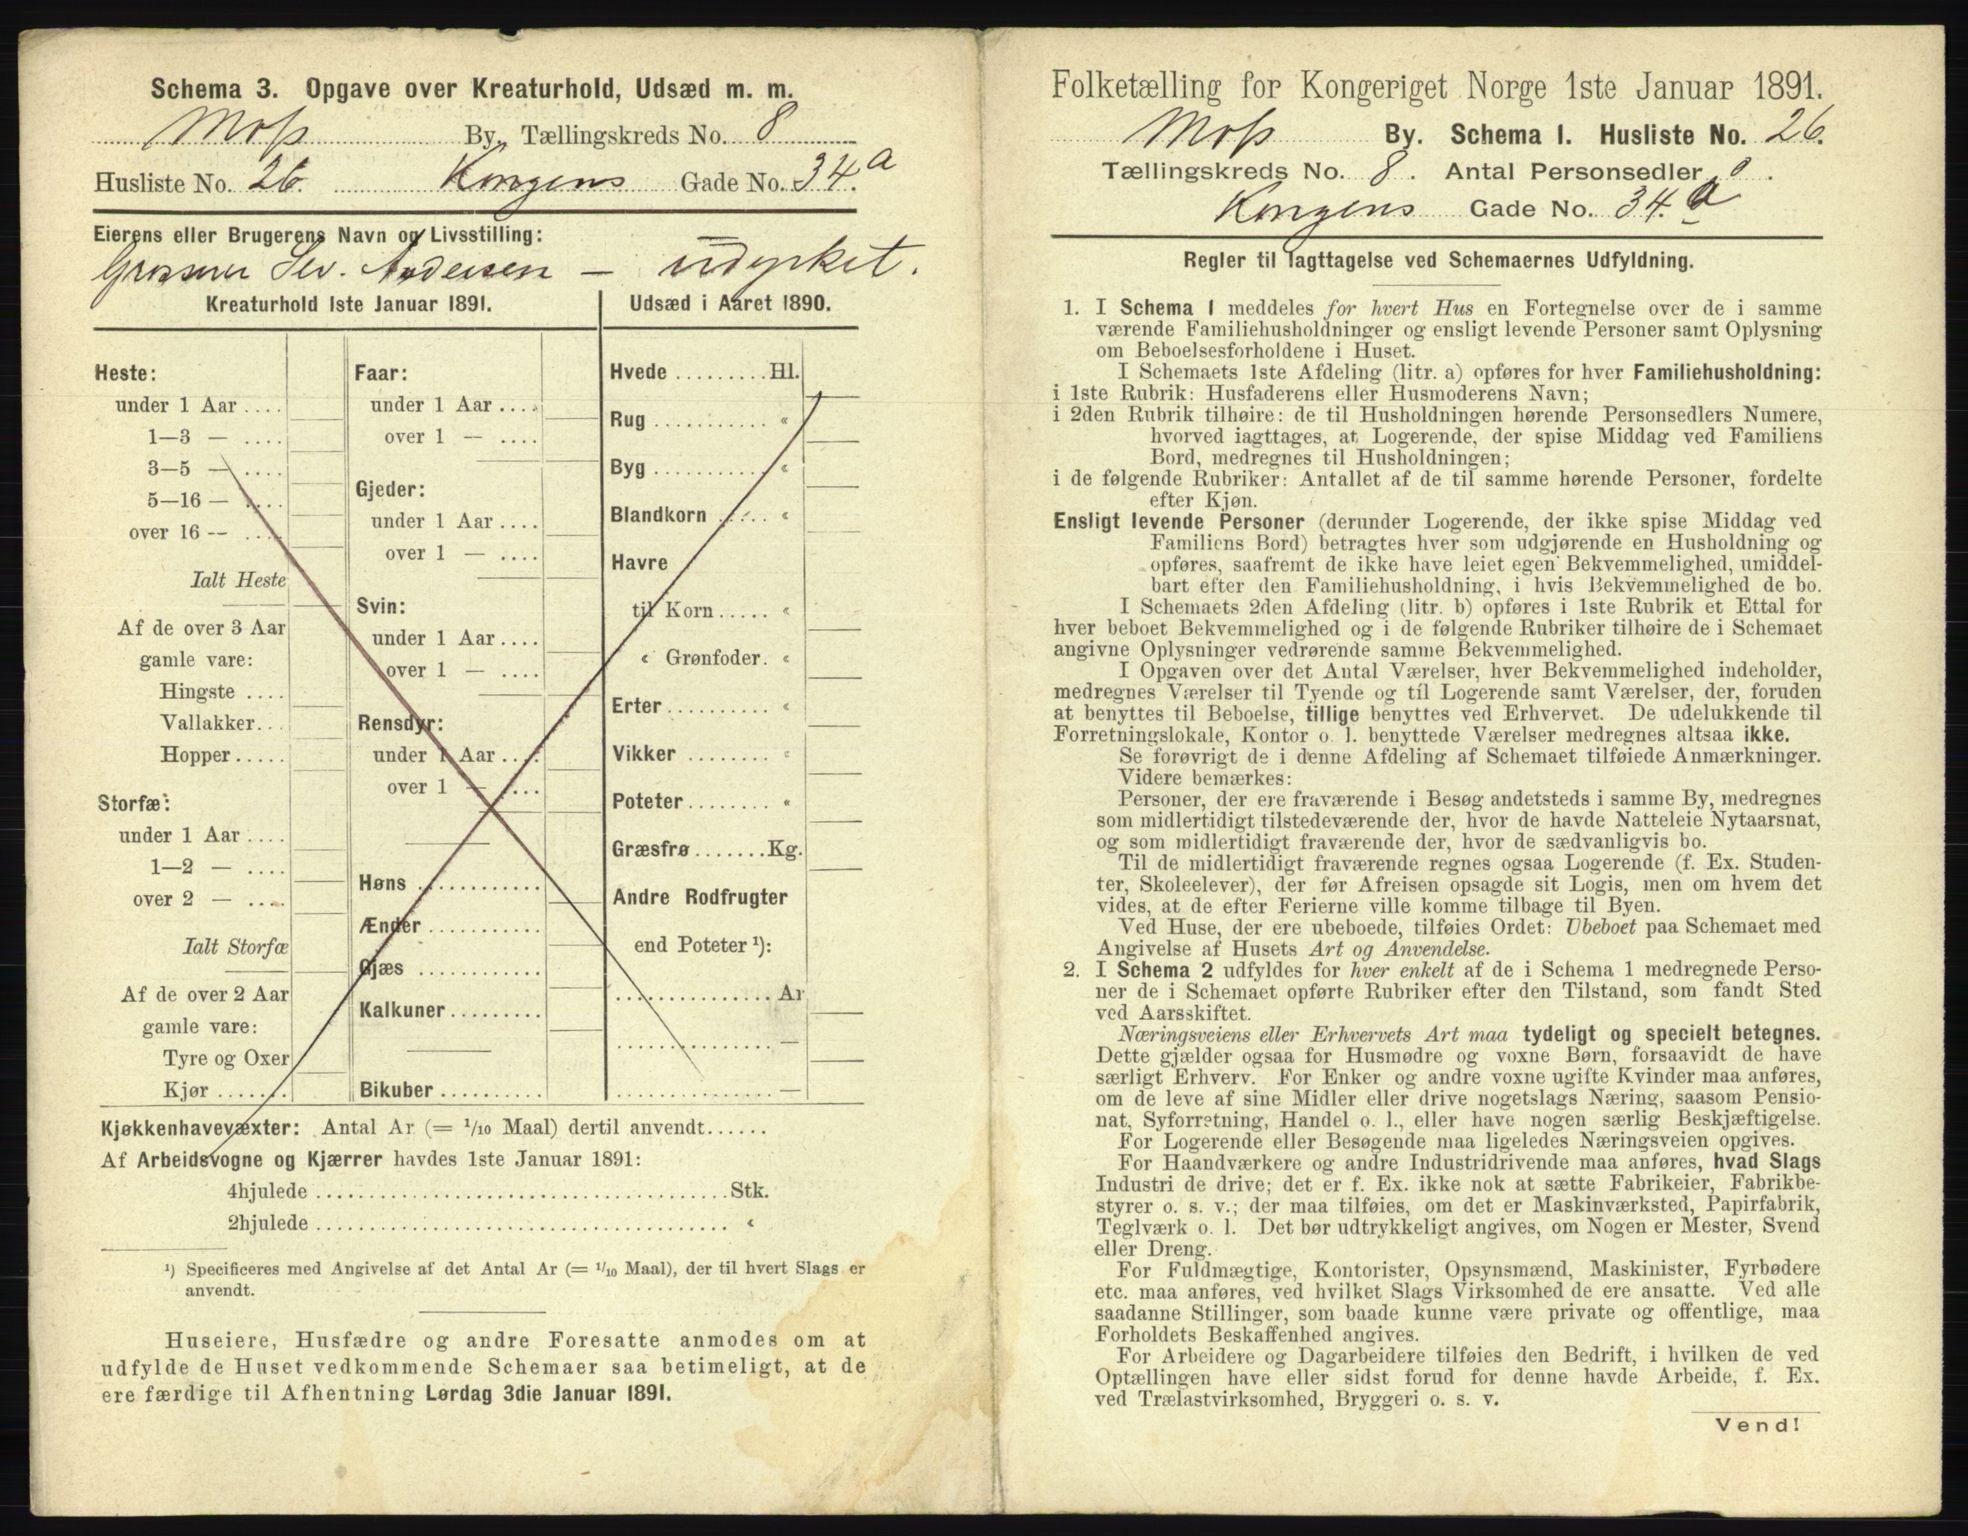 Schema 3. Opgave over Kreaturhold, Udsæd m. m.
Moss By, Tællingskreds No. 8
Husliste No. 26. Kongens Gade No. 34.a
Eierens eller Brugerens Navn og Livsstilling:
Grosserer Andersen – udyrket.
Kreaturhold 1ste Januar 1891.
Heste:
under 1 Aar ....
1—3 — ....
3—5 — ....
5—16 — ....
over 16 — ....
Ialt Heste
Af de over 3 Aar
gamle vare:
Hingste ....
Vallakker...
Hopper.....
Storfæ:
under 1 Aar ....
1—2 — ....
over 2 — ....
Ialt Storfæ
Af de over 2 Aar
gamle vare:
Tyre og Oxer
Kjør .......
Faar:
under 1 Aar ....
over 1 — ....
Gjeder:
under 1 Aar ....
over 1 — ....
Svin:
under 1 Aar ....
over 1 — ....
Rensdyr:
under 1 Aar ....
over 1 — ....
Høns ............
Ænder ...........
Gjæs ............
Kalkuner.........
Bikuber ..........
Udsæd i Aaret 1890.
Hvede .........Hl.
Rug ........... «
Byg ........... «
Blandkorn ..... «
Havre
til Korn ..... «
« Grønfoder. «
Erter .......... «
Vikker ........ «
Poteter ........ «
Græsfrø.......Kg.
Andre Rodfrugter
end Poteter ¹):
............... Ar
............... —
............... —
Kjøkkenhavevæxter: Antal Ar (= 1/10 Maal) dertil anvendt......
Af Arbeidsvogne og Kjærrer havdes 1ste Januar 1891:
4hjulede ....................................... Stk.
2hjulede ....................................... «
¹) Specificeres med Angivelse af det Antal Ar (= 1/10 Maal), der til hvert Slags er
anvendt.
Huseiere, Husfædre og andre Foresatte anmodes om at
udfylde de Huset vedkommende Schemaer saa betimeligt, at de
ere færdige til Afhentning Lørdag 3die Januar 1891.
Folketælling for Kongeriget Norge 1ste Januar 1891.
Moss By. Schema I. Husliste No. 26.
Tællingskreds No. 8. Antal Personsedler 0.
Kongens Gade No. 34.a
Regler til Iagttagelse ved Schemaernes Udfyldning.
1. I Schema 1 meddeles for hvert Hus en Fortegnelse over de i samme
værende Familiehusholdninger og ensligt levende Personer samt Oplysning
om Beboelsesforholdene i Huset.
I Schemaets 1ste Afdeling (litr. a) opføres for hver Familiehusholdning:
i 1ste Rubrik: Husfaderens eller Husmoderens Navn;
i 2den Rubrik tilhøire: de til Husholdningen hørende Personsedlers Numere,
hvorved iagttages, at Logerende, der spise Middag ved Familiens
Bord, medregnes til Husholdningen;
i de følgende Rubriker: Antallet af de til samme hørende Personer, fordelte
efter Kjøn.
Ensligt levende Personer (derunder Logerende, der ikke spise Middag ved
Familiens Bord) betragtes hver som udgjørende en Husholdning og
opføres, saafremt de ikke have leiet egen Bekvemmelighed, umiddel-
bart efter den Familiehusholdning, i hvis Bekvemmelighed de bo.
I Schemaets 2den Afdeling (litr. b) opføres i 1ste Rubrik et Ettal for
hver beboet Bekvemmelighed og i de følgende Rubriker tilhøire de i Schemaet
angivne Oplysninger vedrørende samme Bekvemmelighed.
I Opgaven over det Antal Værelser, hver Bekvemmelighed indeholder,
medregnes Værelser til Tyende og til Logerende samt Værelser, der, foruden
at benyttes til Beboelse, tillige benyttes ved Erhvervet. De udelukkende til
Forretningslokale, Kontor o. l. benyttede Værelser medregnes altsaa ikke.
Se forøvrigt de i denne Afdeling af Schemaet tilføiede Anmærkninger.
Videre bemærkes:
Personer, der ere fraværende i Besøg andetsteds i samme By, medregnes
som midlertidigt tilstedeværende der, hvor de havde Natteleie Nytaarsnat,
og som midlertidigt fraværende der, hvor de sædvanligvis bo.
Til de midlertidigt fraværende regnes ogsaa Logerende (f. Ex. Studen-
ter, Skoleelever), der før Afreisen opsagde sit Logis, men om hvem det
vides, at de efter Ferierne ville komme tilbage til Byen.
Ved Huse, der ere ubeboede, tilføies Ordet: Ubeboet paa Schemaet med
Angivelse af Husets Art og Anvendelse.
2. I Schema 2 udfyldes for hver enkelt af de i Schema 1 medregnede Perso-
ner de i Schemaet opførte Rubriker efter den Tilstand, som fandt Sted
ved Aarsskiftet.
Næringsveiens eller Erhvervets Art maa tydeligt og specielt betegnes.
Dette gjælder ogsaa for Husmødre og voxne Børn, forsaavidt de have
særligt Erhverv. For Enker og andre voxne ugifte Kvinder maa anføres,
om de leve af sine Midler eller drive nogetslags Næring, saasom Pensio-
nat, Syforretning, Handel o. l., eller have nogen særlig Beskjæftigelse.
For Logerende eller Besøgende maa ligeledes Næringsveien opgives.
For Haandværkere og andre Industridrivende maa anføres, hvad Slags
Industri de drive; det er f. Ex. ikke nok at sætte Fabrikeier, Fabrikbe-
styrer o. s. v.; der maa tilføies, om det er Maskinværksted, Papirfabrik,
Teglværk o. l. Det bør udtrykkeligt angives, om Nogen er Mester, Svend
eller Dreng.
For Fuldmægtige, Kontorister, Opsynsmænd, Maskinister, Fyrbødere
etc. maa anføres, ved hvilket Slags Virksomhed de ere ansatte. Ved alle
saadanne Stillinger, som baade kunne være private og offentlige, maa
Forholdets Beskaffenhed angives.
For Arbeidere og Dagarbeidere tilføies den Bedrift, i hvilken de ved
Optællingen have eller sidst forud for denne havde Arbeide, f. Ex.
ved Trælastvirksomhed, Bryggeri o. s. v.
Vend!